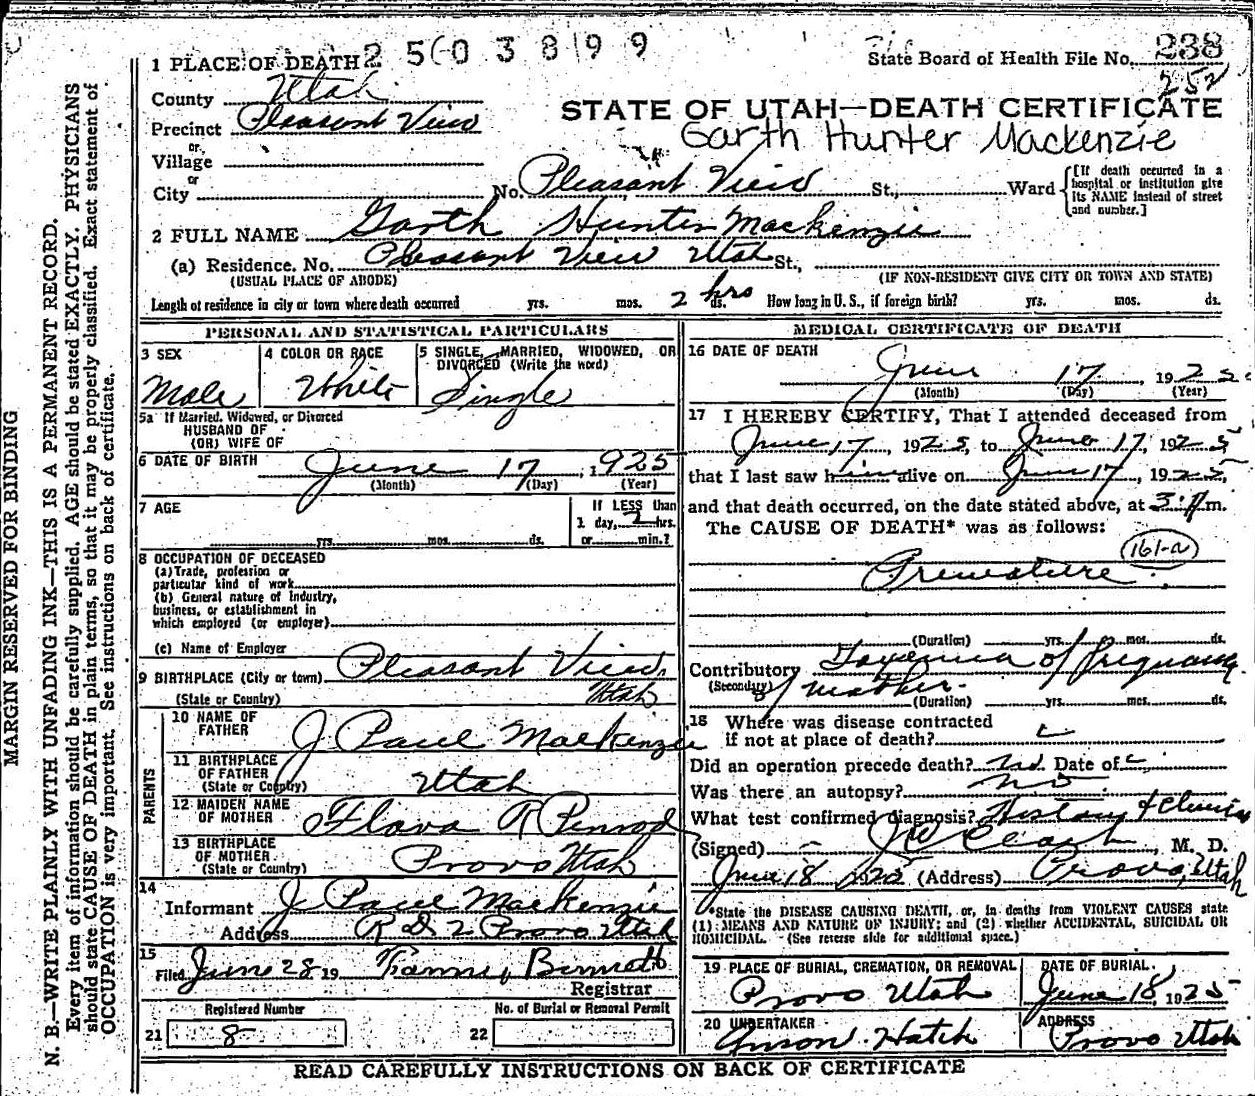 2 5 0 3 8 9 9
1 PLACE OF DEATH
State Board of Health File No. 238
252
County Utah
STATE OF UTAH—DEATH CERTIFICATE
Precinct Pleasant View
Garth Hunter Mackenzie
or
Village
or
City No. Pleasant View St., Ward
[If death occurred in a hospital or institution give its NAME instead of street and number.]
2 FULL NAME Garth Hunter Mackenzie
(a) Residence. No. Pleasant View Utah St.,
(USUAL PLACE OF ABODE) (IF NON-RESIDENT GIVE CITY OR TOWN AND STATE)
Length of residence in city or town where death occurred yrs. mos. 2 hrs ds. How long in U. S., if foreign birth? yrs. mos. ds.
PERSONAL AND STATISTICAL PARTICULARS
3 SEX
Male
4 COLOR OR RACE
White
5 SINGLE, MARRIED, WIDOWED, OR
DIVORCED (Write the word)
Single
5a If Married, Widowed, or Divorced
HUSBAND OF
(OR) WIFE OF
6 DATE OF BIRTH June 17, 1925
(Month) (Day) (Year)
7 AGE
yrs. mos. ds.
If LESS than
1 day, 2 hrs.
or min.?
8 OCCUPATION OF DECEASED
(a) Trade, profession or
particular kind of work
(b) General nature of Industry,
business, or establishment in
which employed (or employer)
(c) Name of Employer
9 BIRTHPLACE (City or town) Pleasant View,
(State or Country) Utah
PARENTS
10 NAME OF
FATHER J Paul Mackenzie
11 BIRTHPLACE
OF FATHER
(State or Country) Utah
12 MAIDEN NAME
OF MOTHER Flava R Penrod
13 BIRTHPLACE
OF MOTHER
(State or Country) Provo Utah
14
Informant J Paul Mackenzie
Address R D 2 Provo Utah
15
Filed June 28 19 Bennett
Registrar
Registered Number
21 8
No. of Burial or Removal Permit
22
MEDICAL CERTIFICATE OF DEATH
16 DATE OF DEATH
June 17, 1925
(Month) (Day) (Year)
17 I HEREBY CERTIFY, That I attended deceased from
June 17, 1925, to June 17, 1925
that I last saw him alive on June 17, 1925,
and that death occurred, on the date stated above, at 3 p m.
The CAUSE OF DEATH* was as follows:
161-a
Premature
(Duration) yrs. mos. ds.
Contributory Toxemia of pregnancy
(Secondary) of mother.
(Duration) yrs. mos. ds.
18 Where was disease contracted
if not at place of death?
Did an operation precede death? No. Date of
Was there an autopsy? no
What test confirmed diagnosis? History & Clinical
(Signed) , M. D.
June 18 1925 (Address) Provo, Utah
*State the DISEASE CAUSING DEATH, or, in deaths from VIOLENT CAUSES state
(1) MEANS AND NATURE OF INJURY; and (2) whether ACCIDENTAL, SUICIDAL OR
HOMICIDAL. (See reverse side for additional space.)
19 PLACE OF BURIAL, CREMATION, OR REMOVAL
Provo Utah
DATE OF BURIAL.
June 18, 1925
20 UNDERTAKER
Anson Hatch
ADDRESS
Provo Utah
READ CAREFULLY INSTRUCTIONS ON BACK OF CERTIFICATE
MARGIN RESERVED FOR BINDING
N. B.—WRITE PLAINLY WITH UNFADING INK—THIS IS A PERMANENT RECORD.
Every item of information should be carefully supplied. AGE should be stated EXACTLY. PHYSICIANS
should state CAUSE OF DEATH in plain terms, so that it may be properly classified. Exact statement of
OCCUPATION is very important. See instructions on back of certificate.